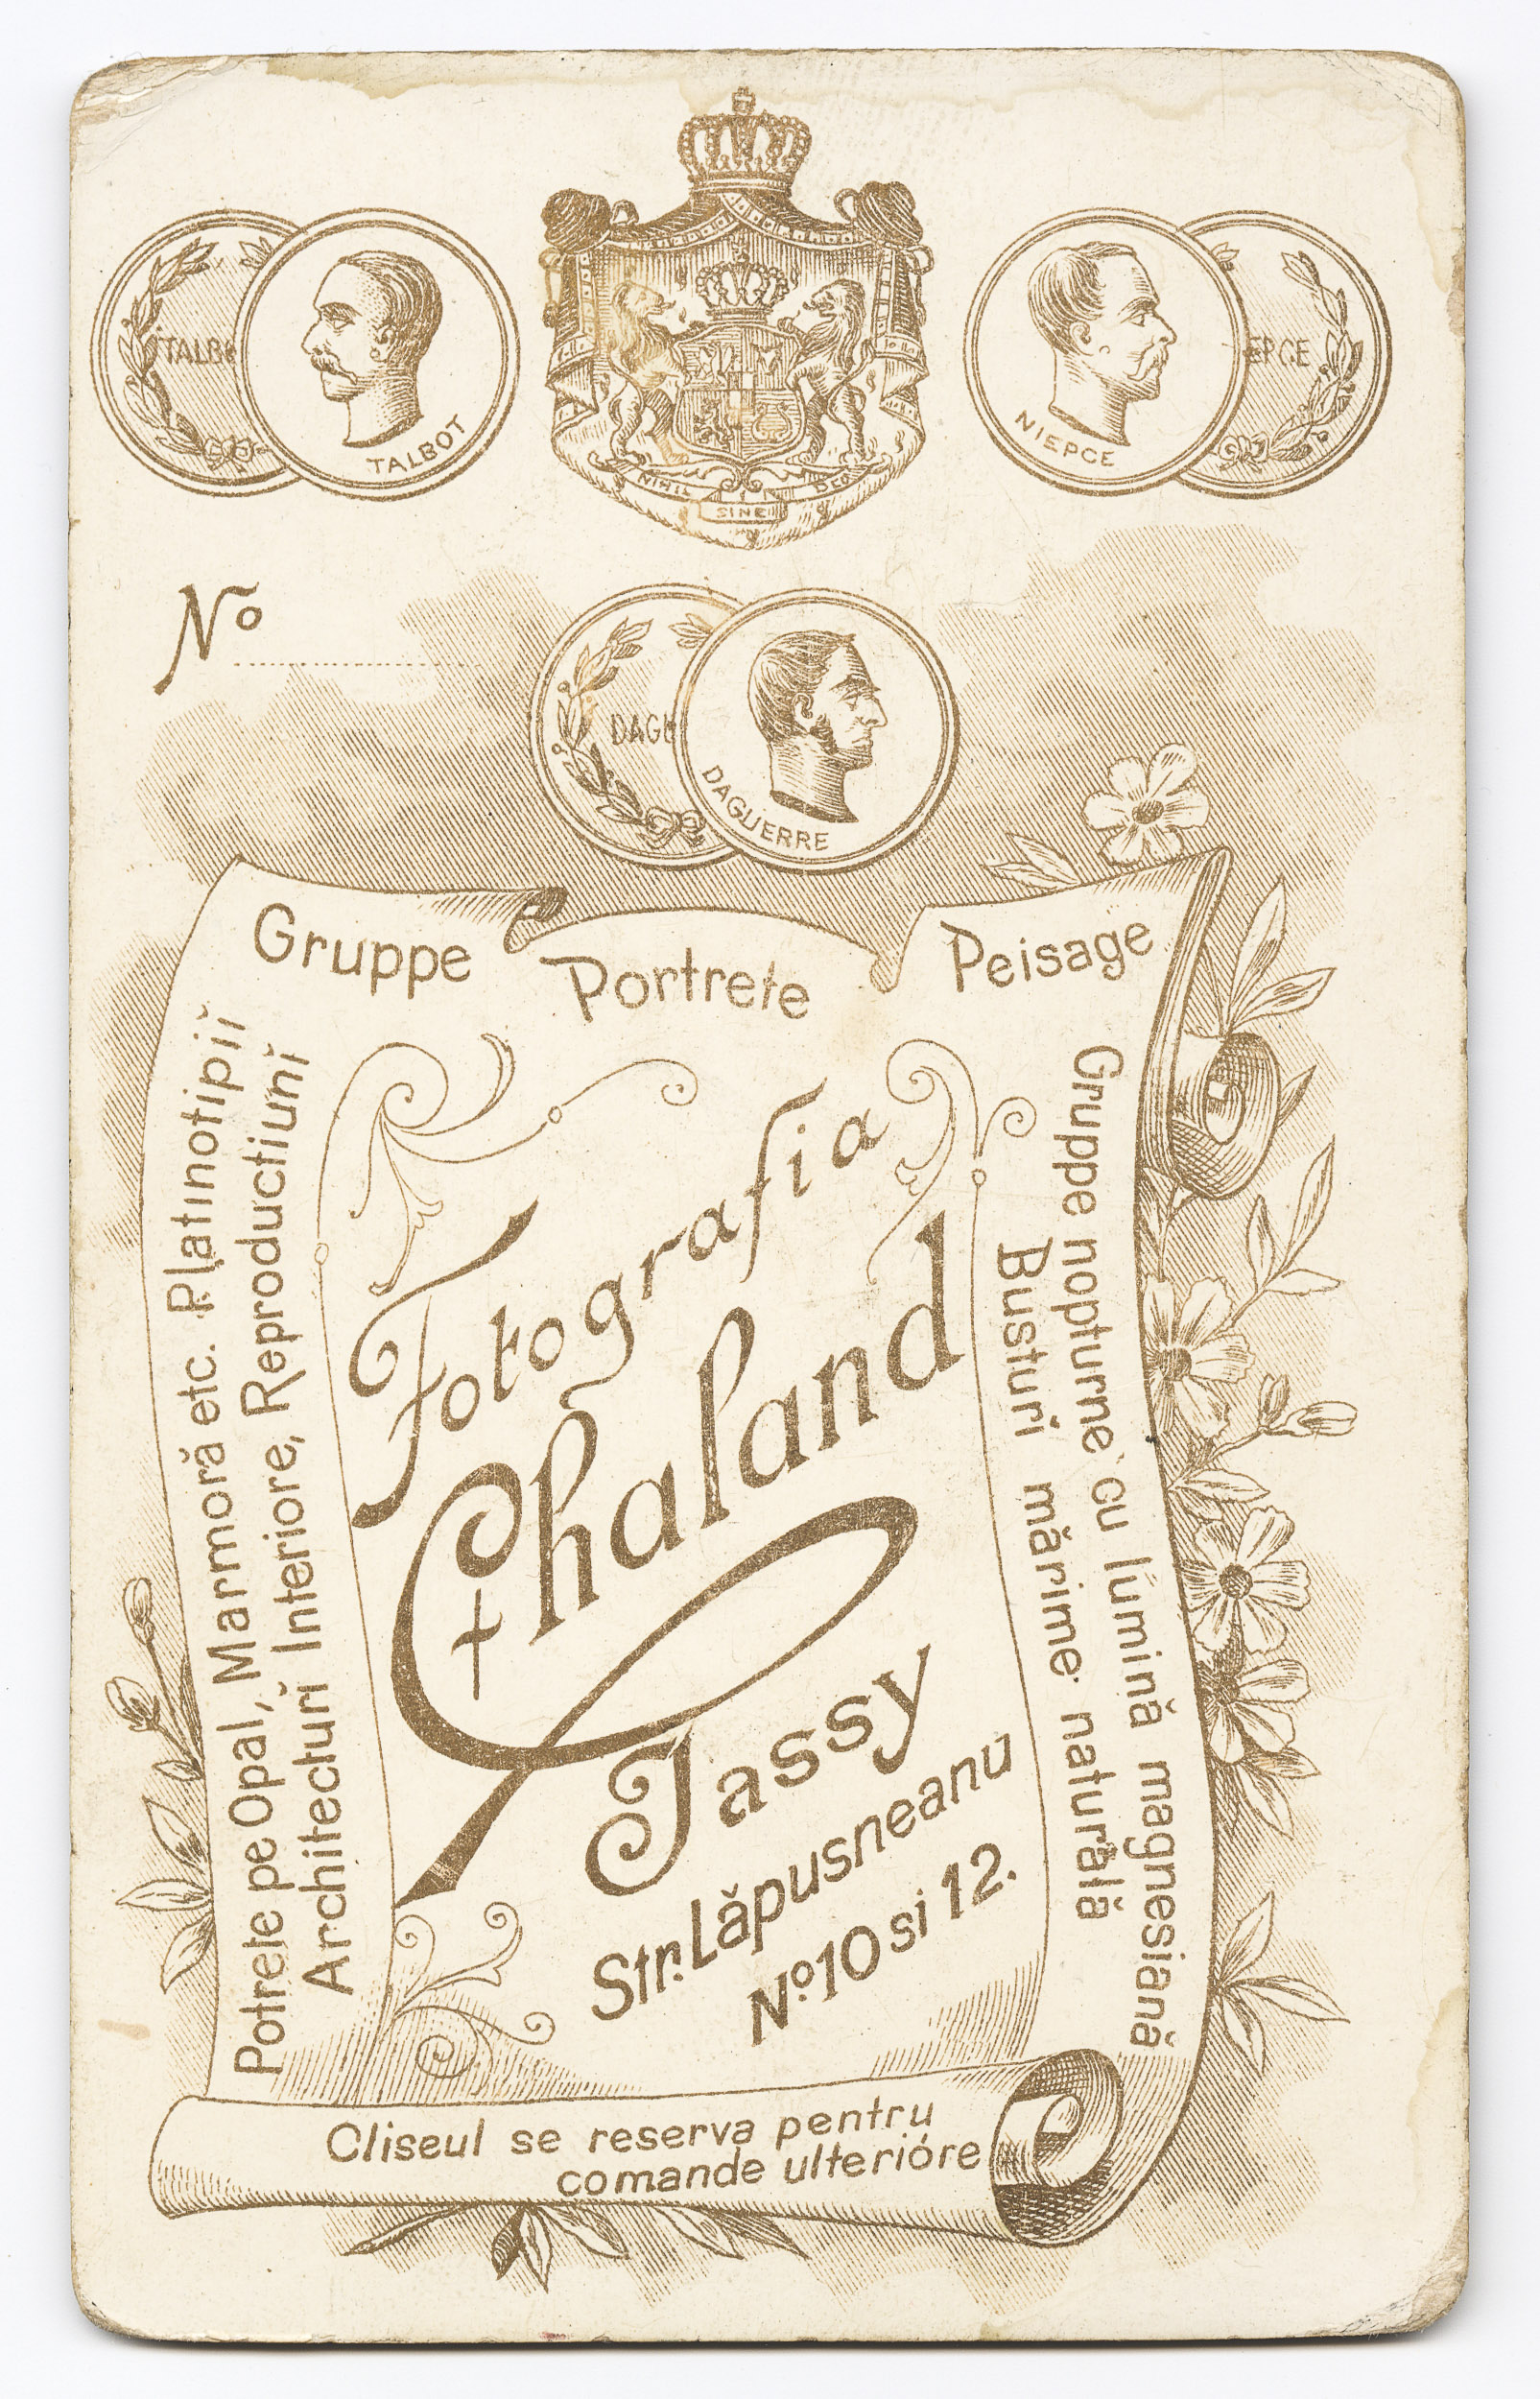 TALBO
TALBOT
NIHIL SINE DEO
NIEPCE
EPCE
No
DAGU
DAGUERRE
Gruppe Portrete Peisage
Potrete pe Opal, Marmoră etc. Platinotipiĭ
Architecturĭ Interiore, Reproductiunĭ
Fotografia
Chaland
Jassy
Str. Lăpusneanu
No. 10 si 12.
Gruppe nopturne cu lumină magnesiană
Busturi mărime naturălă
Cliseul se reserva pentru
comande ulterióre